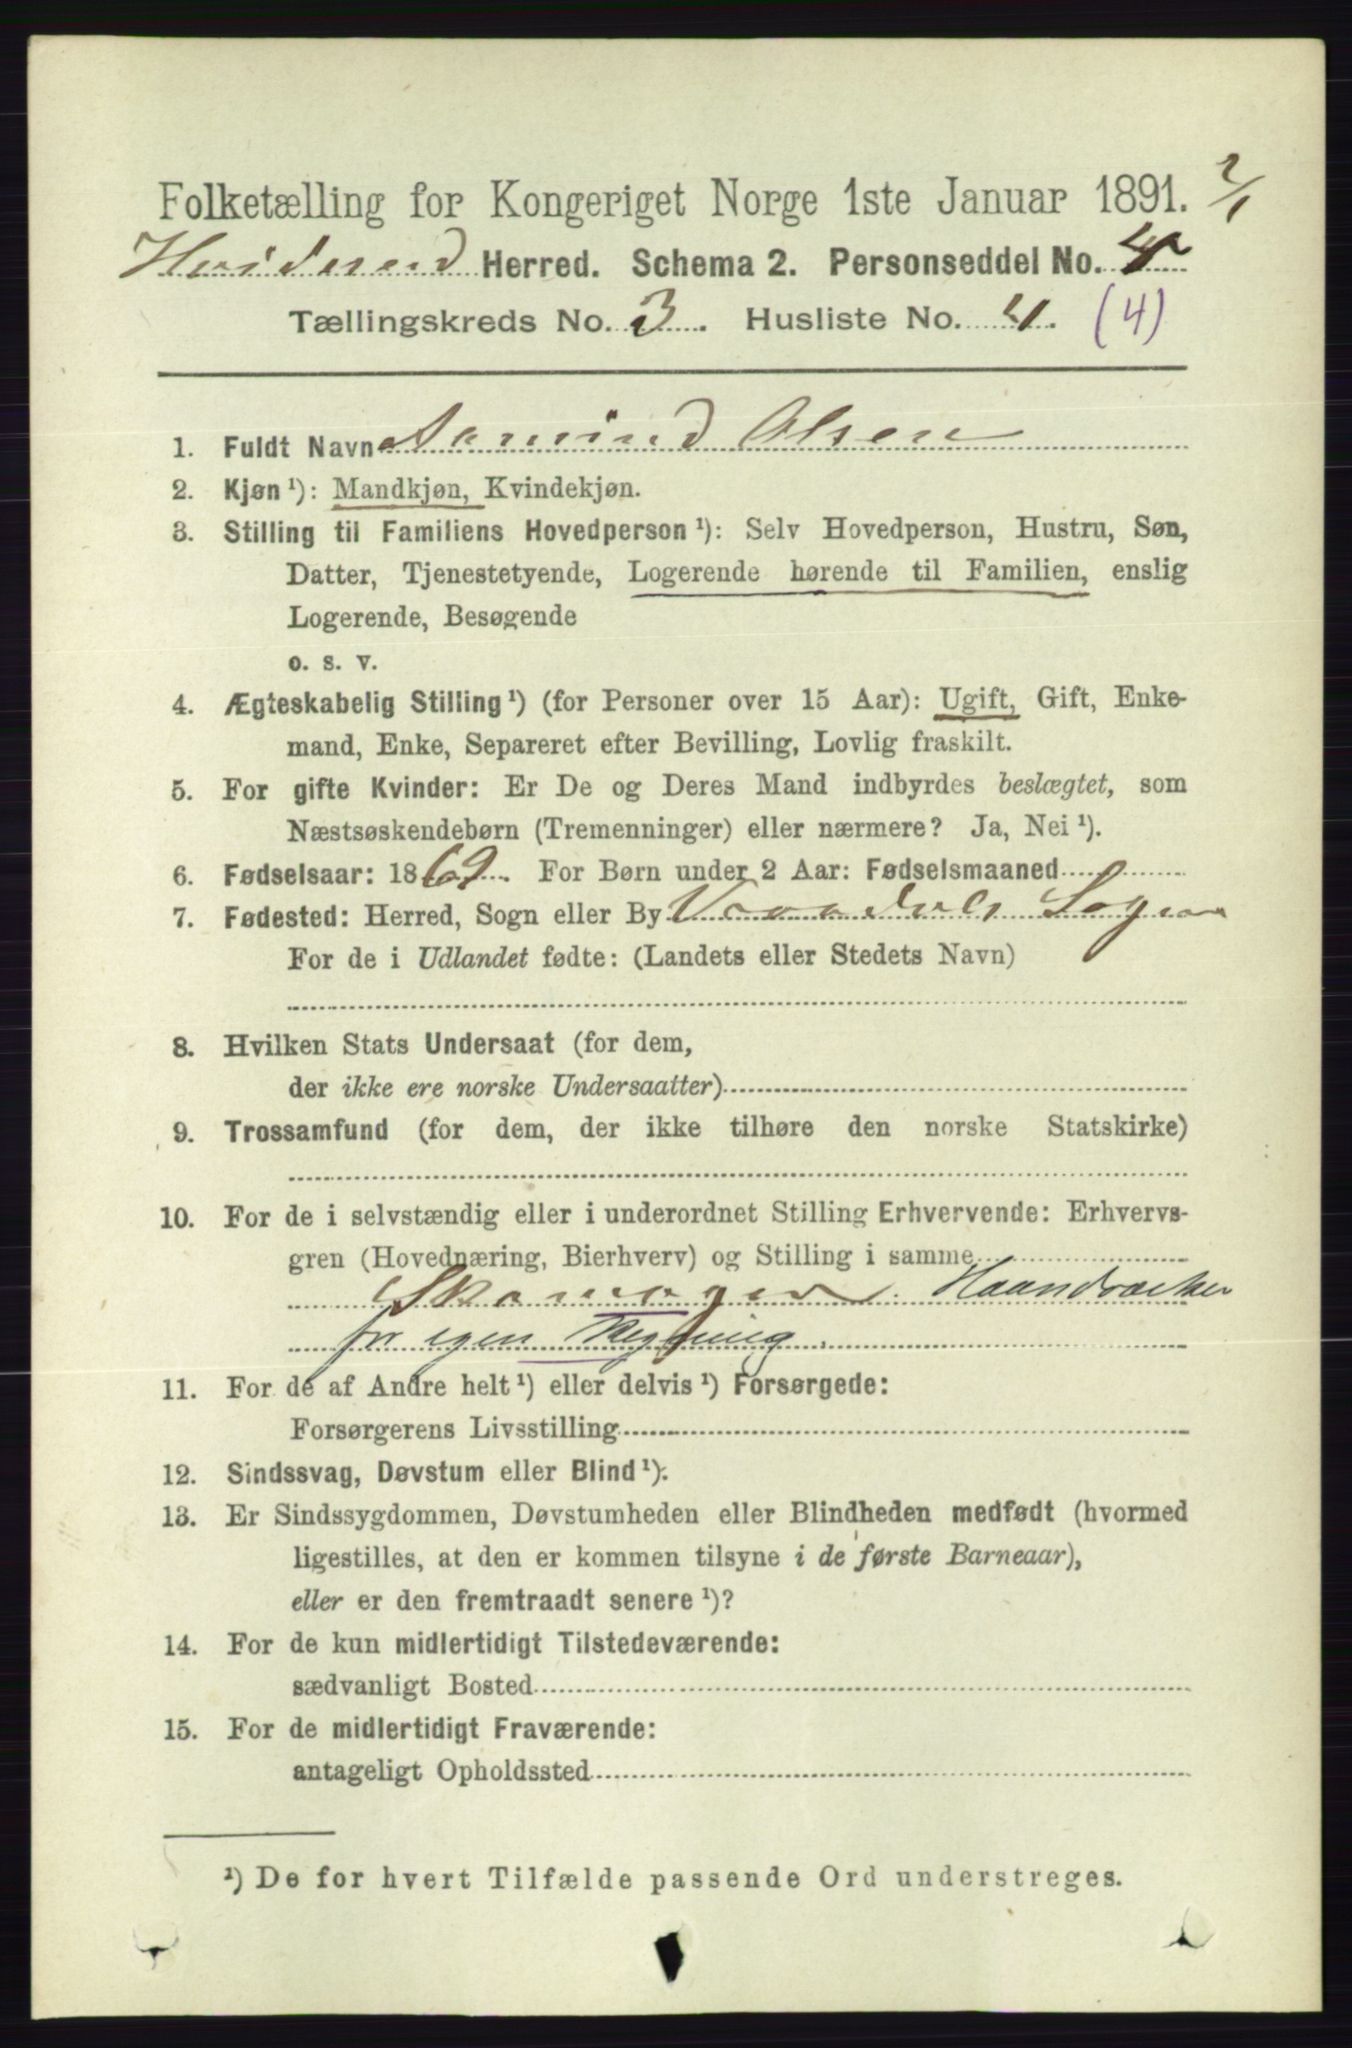 Folketælling for Kongeriget Norge 1ste Januar 1891. 2/1
Hvideseid Herred. Schema 2. Personseddel No. 4
Tællingskreds No. 3. Husliste No. 4. (4)
1. Fuldt Navn Aamund Olsen
2. Kjøn ¹): Mandkjøn, Kvindekjøn.
3. Stilling til Familiens Hovedperson ¹): Selv Hovedperson, Hustru, Søn,
Datter, Tjenestetyende, Logerende hørende til Familien, enslig
Logerende, Besøgende
o. s. v.
4. Ægteskabelig Stilling ¹) (for Personer over 15 Aar): Ugift, Gift, Enke-
mand, Enke, Separeret efter Bevilling, Lovlig fraskilt.
5. For gifte Kvinder: Er De og Deres Mand indbyrdes beslægtet, som
Næstsøskendebørn (Tremenninger) eller nærmere? Ja, Nei ¹).
6. Fødselsaar: 1869. For Børn under 2 Aar: Fødselsmaaned
7. Fødested: Herred, Sogn eller By Sogn
For de i Udlandet fødte: (Landets eller Stedets Navn)
8. Hvilken Stats Undersaat (for dem,
der ikke ere norske Undersaatter)
9. Trossamfund (for dem, der ikke tilhøre den norske Statskirke)
10. For de i selvstændig eller i underordnet Stilling Erhvervende: Erhvervs-
gren (Hovednæring, Bierhverv) og Stilling i samme
Skomager. Haandværker
for egen Regning.
11. For de af Andre helt ¹) eller delvis ¹) Forsørgede:
Forsørgerens Livsstilling
12. Sindssvag, Døvstum eller Blind ¹).
13. Er Sindssygdommen, Døvstumheden eller Blindheden medfødt (hvormed
ligestilles, at den er kommen tilsyne i de første Barneaar),
eller er den fremtraadt senere ¹)?
14. For de kun midlertidigt Tilstedeværende:
sædvanligt Bosted
15. For de midlertidigt Fraværende:
antageligt Opholdssted
¹) De for hvert Tilfælde passende Ord understreges.